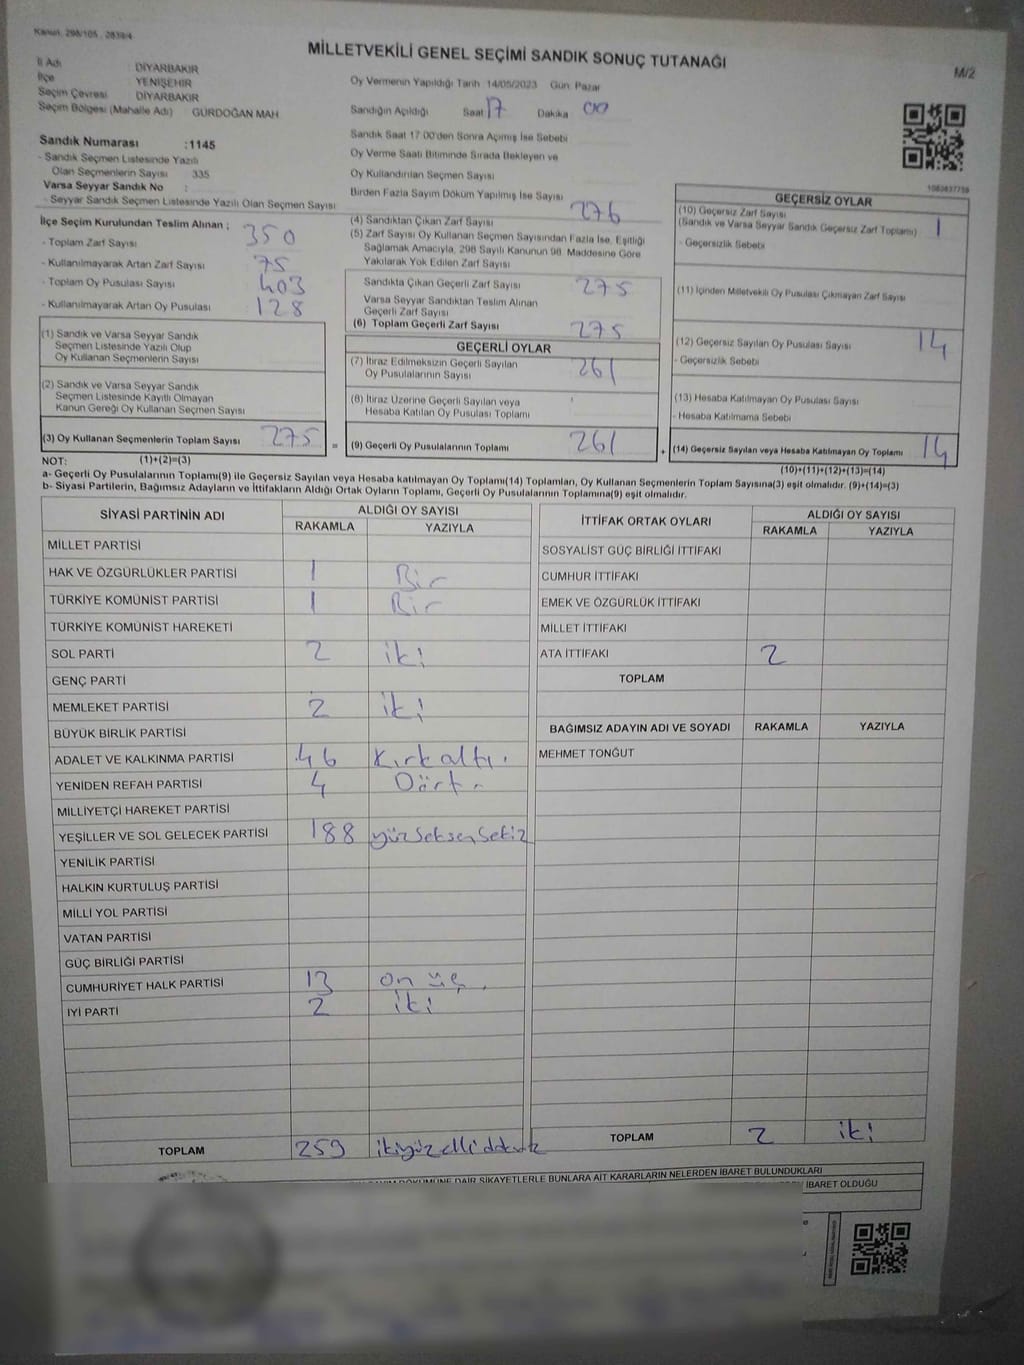 Kanun. 298/105 , 2839/4
MİLLETVEKİLİ GENEL SEÇİMİ SANDIK SONUÇ TUTANAĞI
M/2
İl Adı : DİYARBAKIR
İlçe : YENİŞEHİR
Seçim Çevresi : DİYARBAKIR
Seçim Bölgesi (Mahalle Adı) : GÜRDOĞAN MAH
Sandık Numarası :1145
- Sandık Seçmen Listesinde Yazılı
Olan Seçmenlerin Sayısı : 335
Varsa Seyyar Sandık No :
- Seyyar Sandık Seçmen Listesinde Yazılı Olan Seçmen Sayısı
Oy Vermenin Yapıldığı Tarih 14/05/2023 Gün: Pazar
Sandığın Açıldığı Saat 17 Dakika 00
Sandık Saat 17:00'den Sonra Açılmış İse Sebebi
Oy Verme Saati Bitiminde Sırada Bekleyen ve
Oy Kullandırılan Seçmen Sayısı
Birden Fazla Sayım Döküm Yapılmış İse Sayısı
İlçe Seçim Kurulundan Teslim Alınan ; 350
- Toplam Zarf Sayısı
- Kullanılmayarak Artan Zarf Sayısı 75
- Toplam Oy Pusulası Sayısı 403
- Kullanılmayarak Artan Oy Pusulası 128
(1) Sandık ve Varsa Seyyar Sandık
Seçmen Listesinde Yazılı Olup
Oy Kullanan Seçmenlerin Sayısı
(2) Sandık ve Varsa Seyyar Sandık
Seçmen Listesinde Kayıtlı Olmayan
Kanun Gereği Oy Kullanan Seçmen Sayısı
(3) Oy Kullanan Seçmenlerin Toplam Sayısı 275 =
(4) Sandıktan Çıkan Zarf Sayısı 276
(5) Zarf Sayısı Oy Kullanan Seçmen Sayısından Fazla İse, Eşitliği
Sağlamak Amacıyla, 298 Sayılı Kanunun 98. Maddesine Göre
Yakılarak Yok Edilen Zarf Sayısı
Sandıkta Çıkan Geçerli Zarf Sayısı 275
Varsa Seyyar Sandıktan Teslim Alınan
Geçerli Zarf Sayısı
(6) Toplam Geçerli Zarf Sayısı 275
GEÇERLİ OYLAR
(7) İtiraz Edilmeksizin Geçerli Sayılan
Oy Pusulalarının Sayısı 261
(8) İtiraz Üzerine Geçerli Sayılan veya
Hesaba Katılan Oy Pusulası Toplamı
(9) Geçerli Oy Pusulalarının Toplamı 261 +
GEÇERSİZ OYLAR
(10) Geçersiz Zarf Sayısı
(Sandık ve Varsa Seyyar Sandık Geçersiz Zarf Toplamı) 1
- Geçersizlik Sebebi
(11) İçinden Milletvekili Oy Pusulası Çıkmayan Zarf Sayısı
(12) Geçersiz Sayılan Oy Pusulası Sayısı 14
- Geçersizlik Sebebi
(13) Hesaba Katılmayan Oy Pusulası Sayısı
- Hesaba Katılmama Sebebi
(14) Geçersiz Sayılan veya Hesaba Katılmayan Oy Toplamı 14
NOT: (1)+(2)=(3)
(10)+(11)+(12)+(13)=(14)
a- Geçerli Oy Pusulalarının Toplamı(9) ile Geçersiz Sayılan veya Hesaba katılmayan Oy Toplamı(14) Toplamları, Oy Kullanan Seçmenlerin Toplam Sayısına(3) eşit olmalıdır. (9)+(14)=(3)
b- Siyasi Partilerin, Bağımsız Adayların ve İttifakların Aldığı Ortak Oyların Toplamı, Geçerli Oy Pusulalarının Toplamına(9) eşit olmalıdır.
SİYASİ PARTİNİN ADI ALDIĞI OY SAYISI
RAKAMLA YAZIYLA
MİLLET PARTİSİ
HAK VE ÖZGÜRLÜKLER PARTİSİ 1 Bir
TÜRKİYE KOMÜNİST PARTİSİ 1 Bir
TÜRKİYE KOMÜNİST HAREKETİ
SOL PARTİ 2 iki
GENÇ PARTİ
MEMLEKET PARTİSİ 2 iki
BÜYÜK BİRLİK PARTİSİ
ADALET VE KALKINMA PARTİSİ 46 Kırkaltı.
YENİDEN REFAH PARTİSİ 4 Dört.
MİLLİYETÇİ HAREKET PARTİSİ
YEŞİLLER VE SOL GELECEK PARTİSİ 188 yüzseksensekiz
YENİLİK PARTİSİ
HALKIN KURTULUŞ PARTİSİ
MİLLİ YOL PARTİSİ
VATAN PARTİSİ
GÜÇ BİRLİĞİ PARTİSİ
CUMHURİYET HALK PARTİSİ 13 on üç.
İYİ PARTİ 2 iki
TOPLAM 259 ikiyüzellidokuz
İTTİFAK ORTAK OYLARI ALDIĞI OY SAYISI
RAKAMLA YAZIYLA
SOSYALİST GÜÇ BİRLİĞİ İTTİFAKI
CUMHUR İTTİFAKI
EMEK VE ÖZGÜRLÜK İTTİFAKI
MİLLET İTTİFAKI
ATA İTTİFAKI 2
TOPLAM
BAĞIMSIZ ADAYIN ADI VE SOYADI RAKAMLA YAZIYLA
MEHMET TONĞUT
TOPLAM 2 iki
DÖKÜMÜNE DAİR ŞİKAYETLERLE BUNLARA AİT KARARLARIN NELERDEN İBARET BULUNDUKLARI
İBARET OLDUĞU